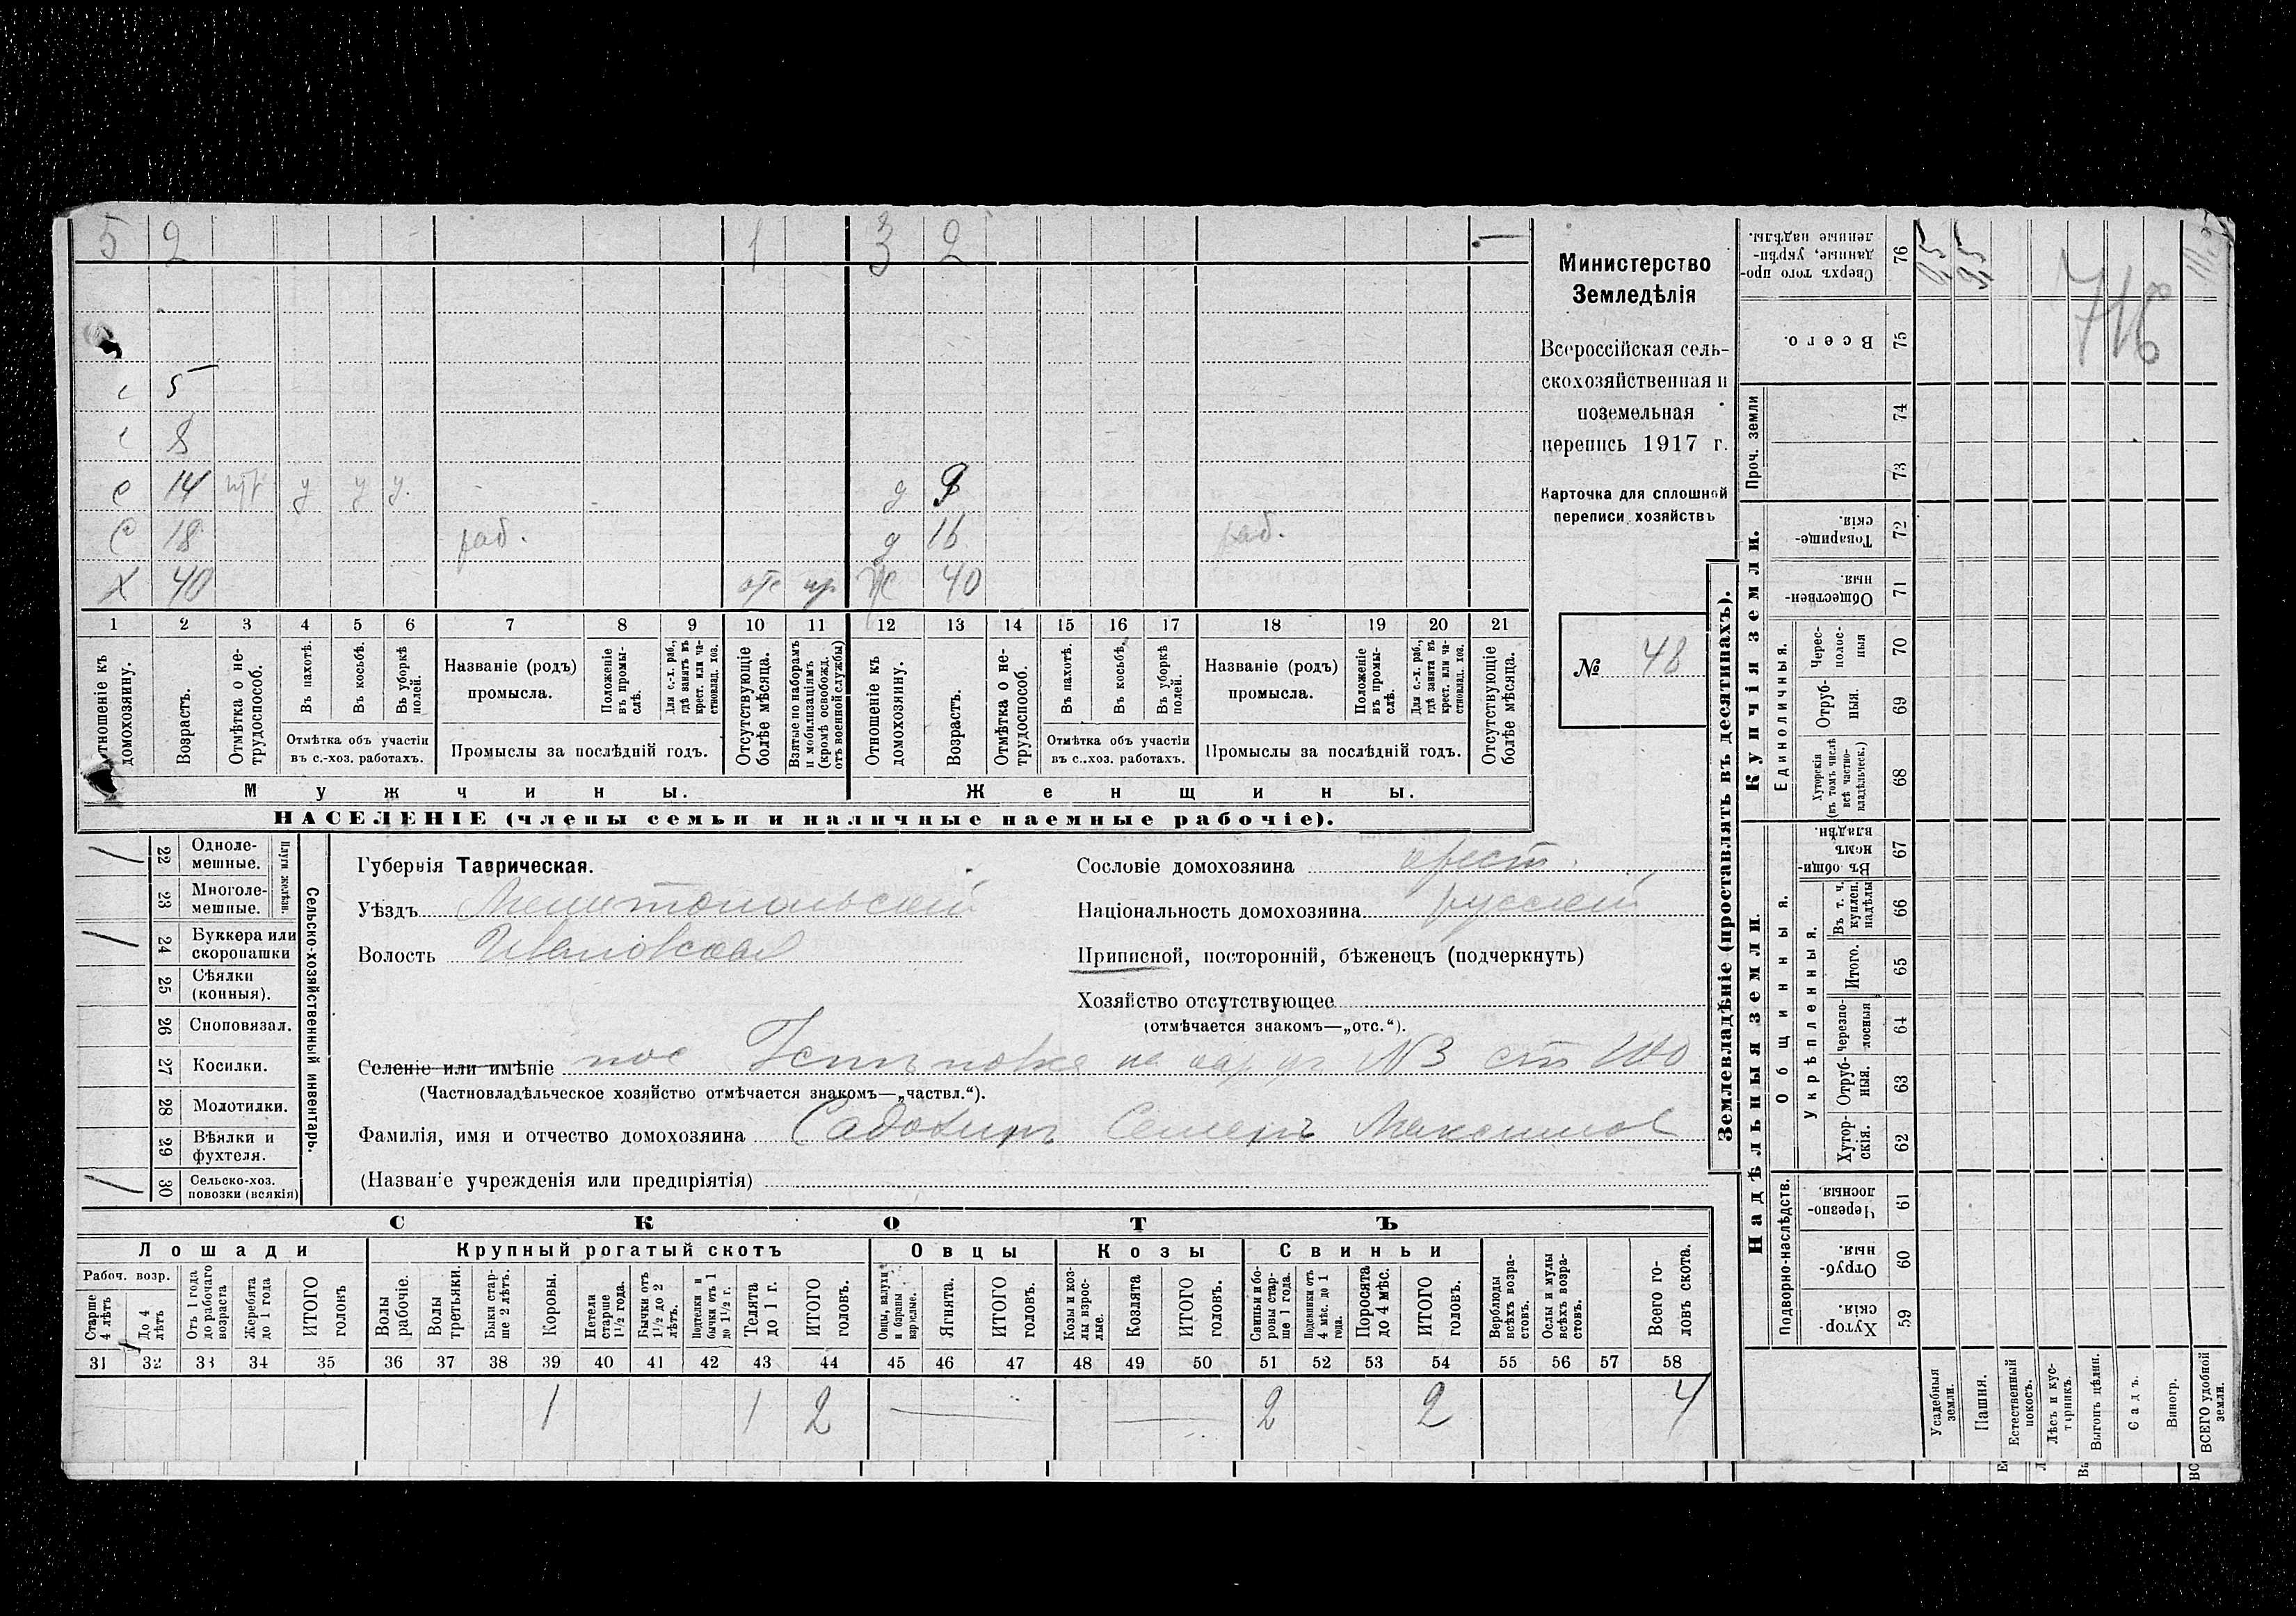 5 2 1 3 2 —
с 5
с 8
с 14 у у у. д 9
с 18 раб. д 16 раб.
Х 40 отс ж 40
1 2 3 4 5 6 7 8 9 10 11 12 13 14 15 16 17 18 19 20 21
Отношеніе къ домохозяину.
Возрастъ.
Отмѣтка о не-трудоспособ.
Въ пахотѣ.
Въ косьбѣ.
Въ уборкѣ полей.
Отмѣтка объ участіи
въ с.-хоз. работахъ.
Названіе (родъ)
промысла.
Положеніе въ промы-слѣ.
Для с.-х. раб., гдѣ занятъ въ крест. или ча-стновлад. хоз.
Промыслы за послѣдній годъ.
Отсутствующіе болѣе мѣсяца.
Взятые по наборамъ и мобилизаціямъ (кромѣ освобожд. отъ военной службы)
Отношеніе къ домохозяину.
Возрастъ.
Отмѣтка о не-трудоспособ.
Въ пахотѣ.
Въ косьбѣ.
Въ уборкѣ полей.
Отмѣтка объ участіи
въ с.-хоз. работахъ.
Названіе (родъ)
промысла.
Положеніе въ промы-слѣ.
Для с.-х. раб., гдѣ занята въ крест. или ча-стновлад. хоз.
Промыслы за послѣдній годъ.
Отсутствующіе болѣе мѣсяца.
Мужчины. Женщины.
НАСЕЛЕНІЕ (члены семьи и наличные наемные рабочіе).
Министерство
Земледѣлія
Всероссійская сель-
скохозяйственная и
поземельная
перепись 1917 г.
Карточка для сплошной
переписи хозяйствъ
№ 48
Сельско-хозяйственный инвентарь.
Плуги желѣзн.
22 Одноле-
мешные.
23 Многоле-
мешные.
24 Буккера или
скоропашки
25 Сѣялки
(конныя).
26 Сноповязал.
27 Косилки.
28 Молотилки.
29 Вѣялки и
фухтеля.
30 Сельско-хоз.
повозки (всякія)
Губернія Таврическая.
Уѣздъ Мелитопольскій
Волость Ивановская
Сословіе домохозяина крест.
Національность домохозяина русскій
Приписной, посторонній, бѣженецъ (подчеркнуть)
Хозяйство отсутствующее
(отмѣчается знакомъ—„отс.“).
Селеніе или имѣніе пос № 3
(Частновладѣльческое хозяйство отмѣчается знакомъ—„частвл.“).
Фамилія, имя и отчество домохозяина Семенъ Максимов
(Названіе учрежденія или предпріятія)
СКОТЪ
Лошади Крупный рогатый скотъ Овцы Козы Свиньи
Рабоч. возр.
Старше 4 лѣтъ
До 4 лѣтъ
Отъ 1 года до рабочаго возраста
Жеребята до 1 года
ИТОГО головъ
Волы рабочіе.
Волы третьяки.
Быки стар-ше 2 лѣтъ.
Коровы.
Нетели старше 1½ года.
Бычки отъ 1½ до 2 лѣтъ.
Подтелки и бычки отъ 1 до 1½ г.
Телята до 1 г.
ИТОГО головъ.
Овцы, валухи и бараны взрослые.
Ягнята.
ИТОГО головъ.
Козы и коз-лы взрос-лые.
Козлята
ИТОГО головъ.
Свиньи и бо-ровы стар-ше 1 года.
Подсвинки отъ 4 мѣс. до 1 года.
Поросята до 4 мѣс.
ИТОГО головъ.
Верблюды всѣхъ возра-стовъ.
Ослы и мулы всѣхъ возра-стовъ.
Всего го-ловъ скота.
31 32 33 34 35 36 37 38 39 40 41 42 43 44 45 46 47 48 49 50 51 52 53 54 55 56 57 58
1 1 2 — — 2 2 4
Землевладѣніе (проставлять въ десятинахъ).
Надѣльныя земли
Купчія земли.
Проч. земли
Подворно-наслѣдств.
Общинныя.
Укрѣпленныя.
Единоличныя.
Хутор-скія. 59
Отруб-ныя. 60
Черезпо-лосныя. 61
Хутор-скія. 62
Отруб-ныя. 63
Черезпо-лосныя 64
Итого. 65
Въ т. ч. куплен. надѣлы 66
Въ общин-номъ владѣн. 67
Хуторскія (въ томъ числѣ всѣ частно-владѣльческ.) 68
Отруб-ныя. 69
Черес-полос-ныя 70
Обществен-ныя 71
Товарище-скія. 72
73
74
Всего. 75
Сверхъ того про-данные, укрѣп-ленные надѣлы. 76
Усадебныя земли.
Пашня.
Естественный покосъ.
Лѣсъ и кус-тарникъ.
Выгонъ цѣлин.
Садъ.
Виногр.
ВСЕГО удобной земли.